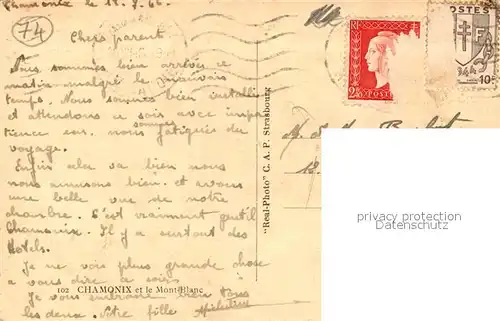 74
Chamonix le 11.7.46.
Chers parents
Nous sommes bien arrivés ce
matin malgré le mauvais
temps. Nous sommes bien installés
et attendons ce soir avec impa
tience car nous sommes fatigués du
voyage.
Enfin cela va bien nous
nous amusons bien. et avons
une belle vue de notre
chambre. C'est vraiment gentil
Chamonix. Il y a surtout des
Hotels.
Je ne vois plus grande chose
a vous dire ce soir
Je vous embrasse bien tous
les deux. Votre fille Micheline
102 CHAMONIX et le Mont-Blanc
"Real-Photo" C. A. P. Strasbourg
RF
2F
POSTES
POSTES
RF
10c
M. & Mme
privacy protection
Datenschutz